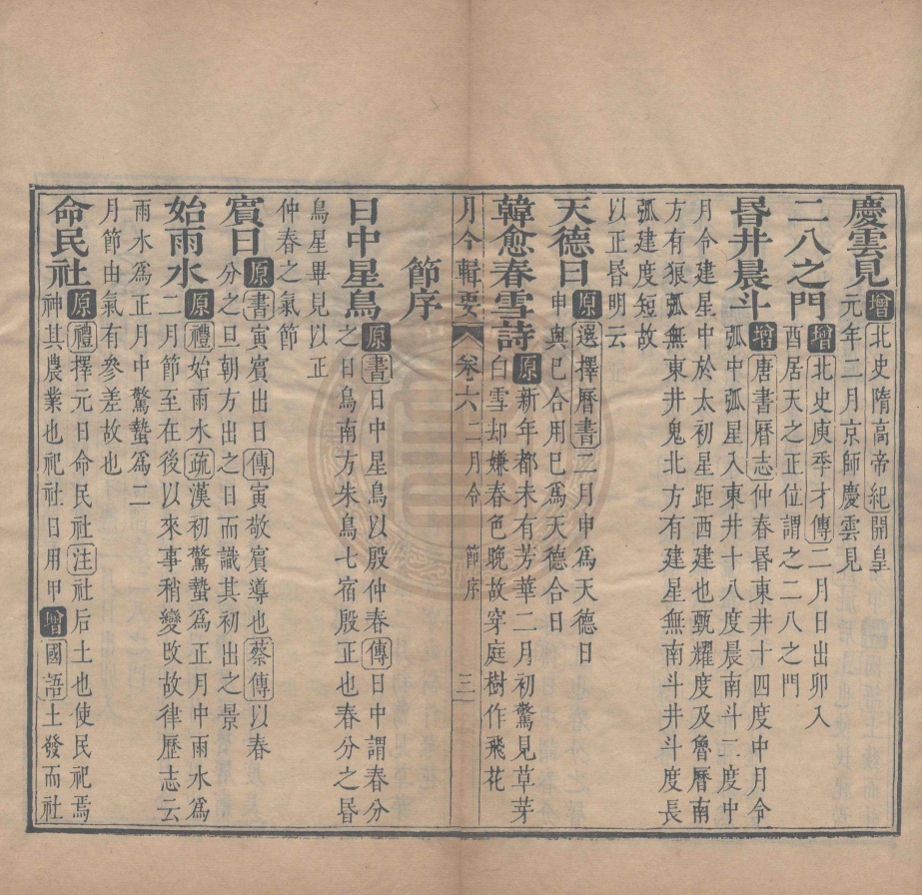 慶雲見增北史隋高帝紀開皇
元年二月京師慶雲見
二八之門增北史庾季才傳二月日出卯入
酉居天之正位謂之二八之門
昬井晨斗增唐書曆志仲春昬東井十四度中月令
弧中弧星入東井十八度晨南斗二度中
月令建星中於太初星距西建也甄耀度及魯曆南
方有狼弧無東井鬼北方有建星無南斗井斗度長
弧建度短故
以正昏明云
天德日原選擇曆書二月申爲天德日
申與巳合用巳爲天德合日
韓愈春雪詩原新年都未有芳華二月初驚見草芽
白雪却嫌春色晚故穿庭樹作飛花
月令輯要 卷六 二月令 節序 三
節序
日中星鳥原書日中星鳥以殷仲春傳日中謂春分
之日鳥南方朱鳥七宿殷正也春分之昏
鳥星畢見以正
仲春之氣節
賓日原書寅賓出日傳寅敬賓導也蔡傳以春
分之旦朝方出之日而識其初出之景
始雨水原禮始雨水疏漢初驚蟄爲正月中雨水爲
二月節至在後以來事稍變改故律歷志云
雨水爲正月中驚蟄爲二
月節由氣有參差故也
命民社原禮擇元日命民社注社后土也使民祀焉
神其農業也祀社日用甲增國語土發而社